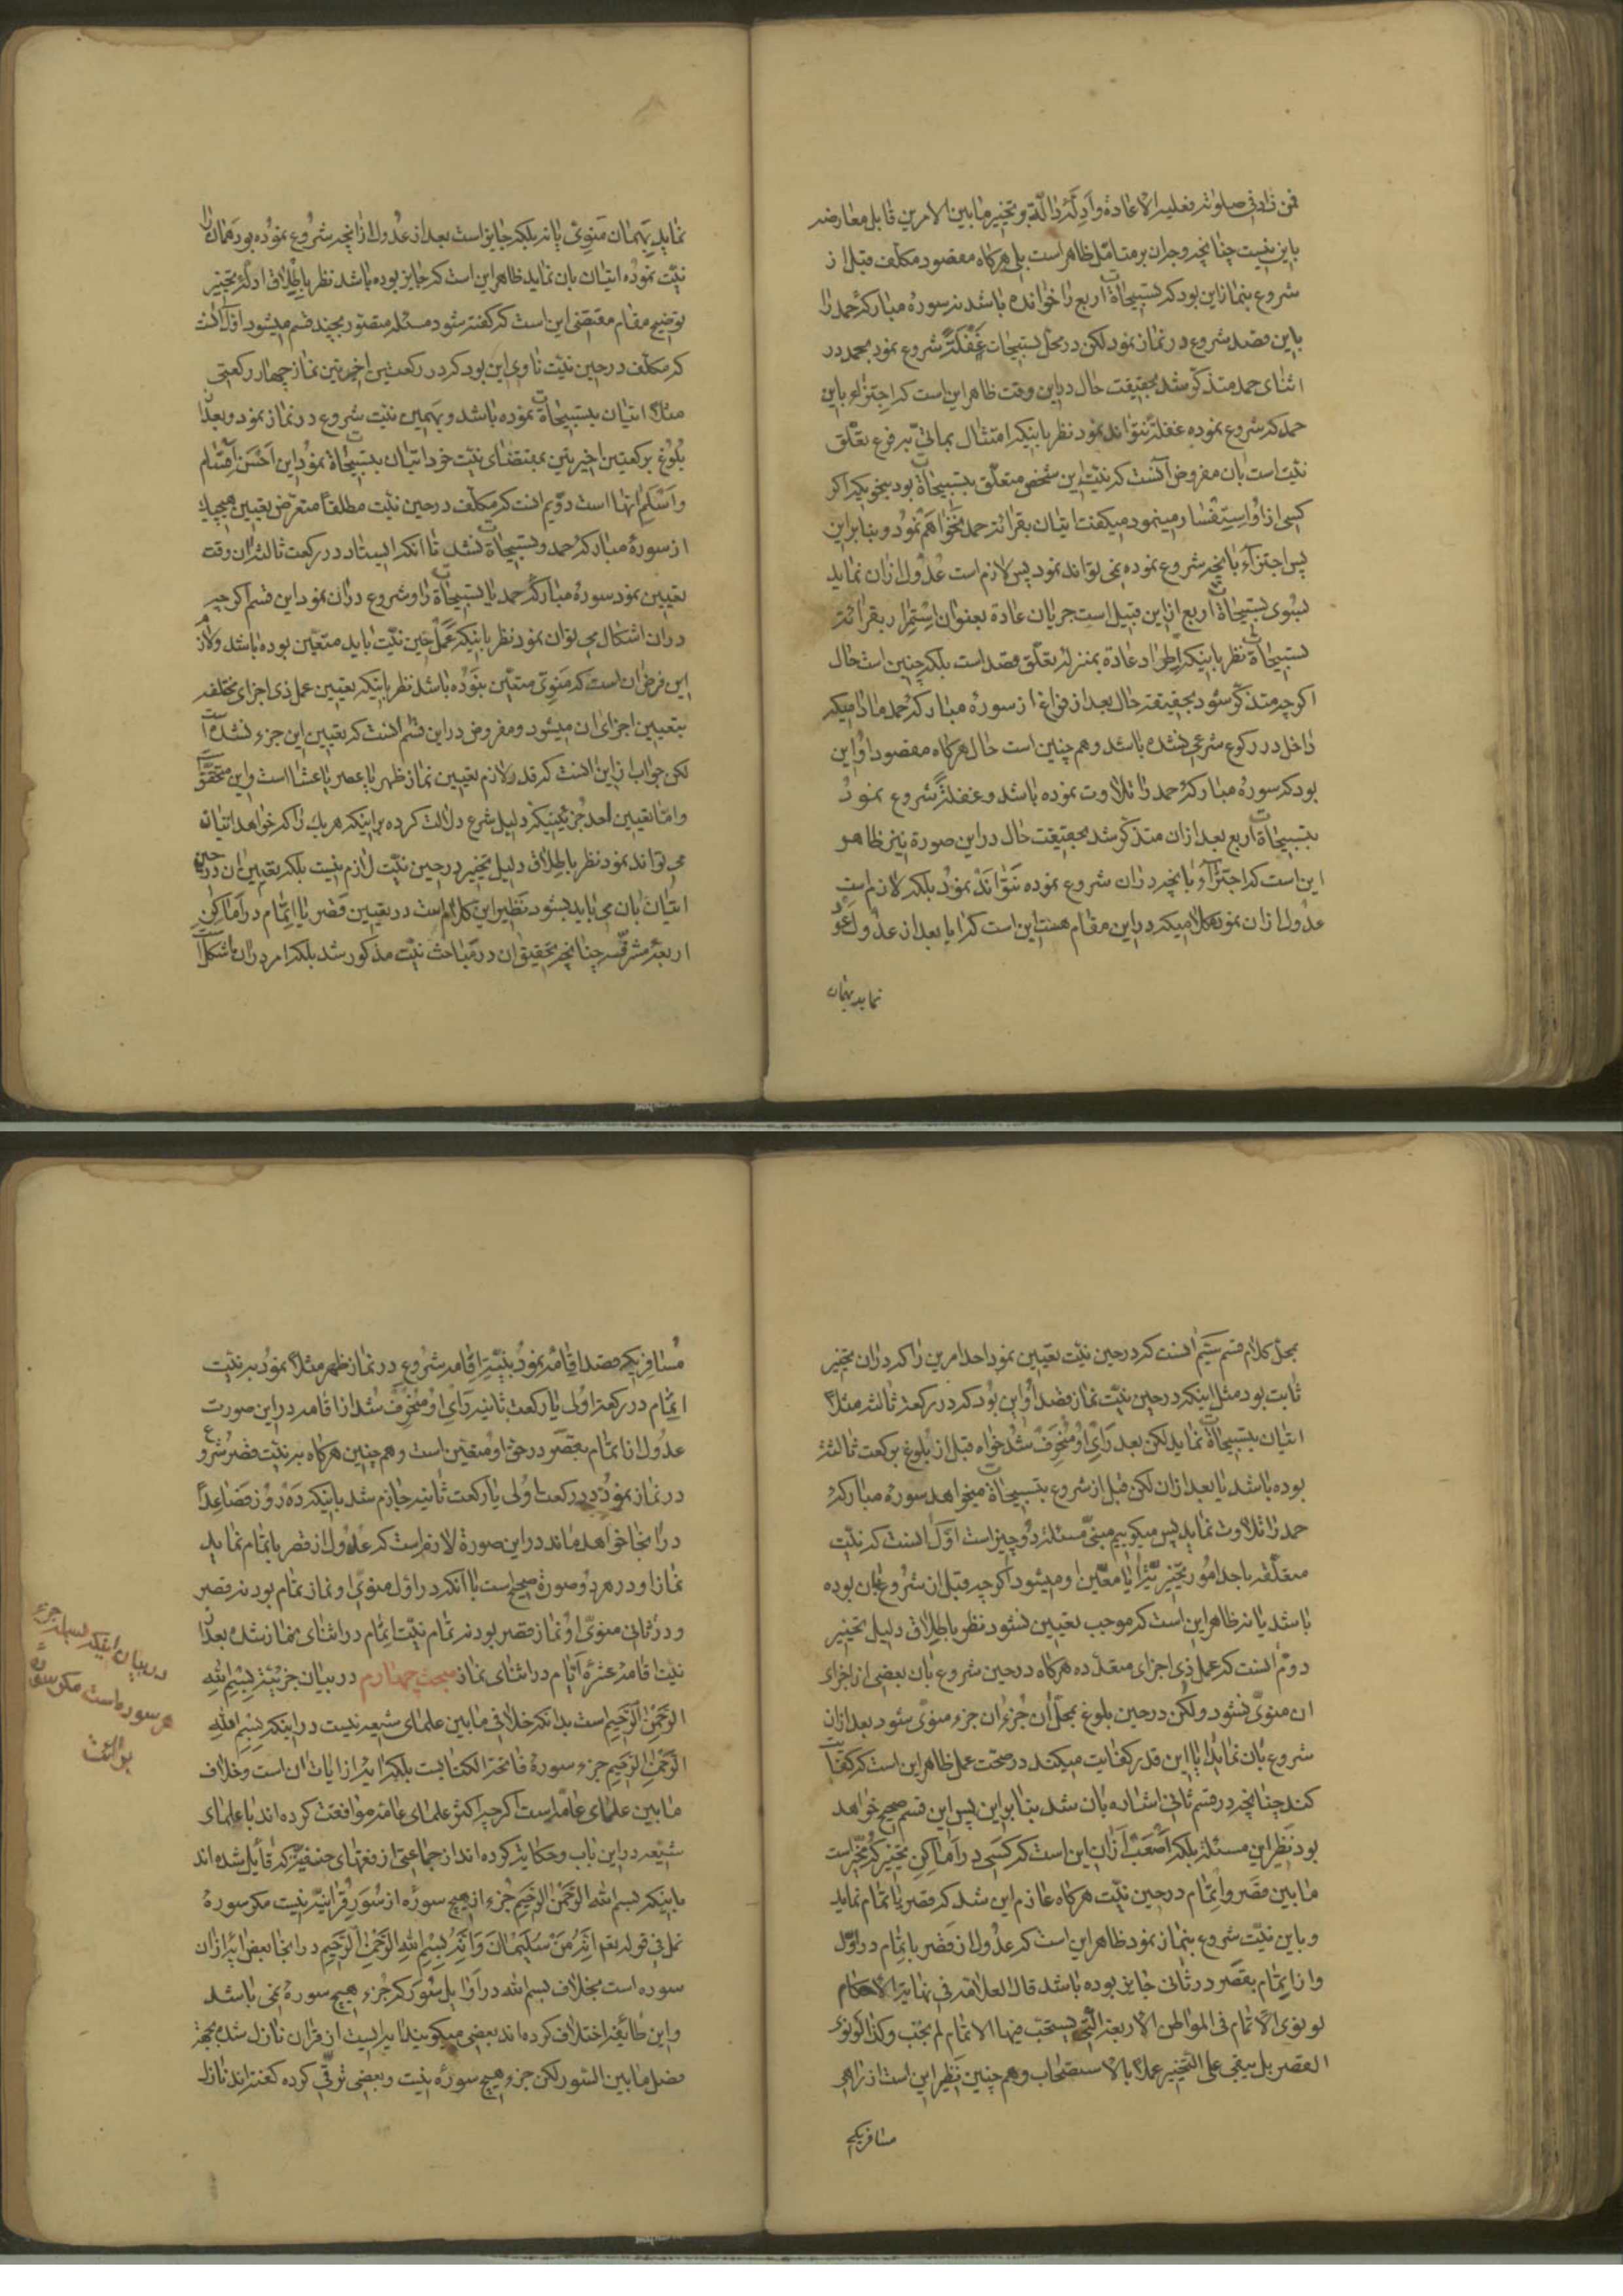 فمن زاد فی صلوته فعلیه الاعادة وادلهٔ دالّهٔ بر تخییر مابین الامرین قابل معارضه
باین نیست چنانچه وجدان بر متأمّل ظاهر است بلی هرکاه مقصود مکلّف قبل از
شروع بنماز این بود که تسبیحاة اربع را خوانده باشد نه سورهٔ مبارکهٔ حمد را
باین قصد شروع در نماز نمود لکن در محل تسبیحات غَفْلَةً شروع نمود بحمد در
اثنای حمد متذکّر شد بحقیقت حال در این وقت ظاهر این است که اجتزاء باین
حمد که شروع نموده غفلةً نتواند نمود نظر باینکه امتثال بمأتیّ به فرع تعلّق
نیّت است بان مفروض آنست که نیّت این شخص متعلّق بتسبیحاة بود بنحویکه اکر
کسی از او استفسار مینمود میکفت اتیان بقرائة حمد نخواهم نمود و بنابراین
پس اجتزاء بانچه شروع نموده نمی تواند نمود پس لازم است عدول ازان نماید
بسوی تسبیحاة اربع از این قبیل است جریان عادة بعنوان استمرار بقرائة
تسبیحاة نظر باینکه اطّراد عادة بمنزلهٔ تعلّق قصد است بلکه چنین است حال
اکرچه متذکّر شود بحقیقة حال بعد از فراغ از سورهٔ مبارکهٔ حمد مادامیکه
داخل در رکوع شرعی نشده باشد و هم چنین است حال هرکاه مقصود او این
بود که سورهٔ مبارکهٔ حمد را تلاوت نموده باشد و غفلةً شروع نمود
بتسبیحاة اربع بعد ازان متذکّر شد بحقیقت حال در این صورة نیز ظاهر
این است که اجتزاء بانچه دران شروع نموده نتواند نمود بلکه لازم است
عدول ازان نمود کلامیکه در این مقام هست این است که ایا بعد از عدول عود
نماید بهمان
نماید بهمان منویّ یا نه بلکه جایز است بعد از عدول ازانچه شروع نموده بود همان را
نیّت نموده اتیان بان نماید ظاهر این است که جایز بوده باشد نظر باطلاق ادلّهٔ تخییر
توضیح مقام مقتضی این است که کفته شود مسئله متصوّر بچند قسم میشود اوّل انست
که مکلّف در حین نیّت ناوی این بود که در رکعتین اخیرتین نماز چهار رکعتی
مثلاً اتیان بتسبیحاة نموده باشد و بهمین نیّت شروع در نماز نمود و بعد از
بلوغ برکعتین اخیرتین بمقتضای نیّت خود اتیان بتسبیحاة نمود این احسن اقسام
و اسلم انها است دوّیم انست که مکلّف در حین نیّت مطلقا متعرّض تعیین هیچیک
از سورهٔ مبارکهٔ حمد و تسبیحاة نشد تا انکه ایستاد در رکعت ثالثه ان وقت
تعیین نمود سورهٔ مبارکهٔ حمد یا تسبیحاة را و شروع دران نمود این قسم اکرچه
دران اشکال می توان نمود نظر باینکه عمل حین نیّت باید متعیّن بوده باشد و لازم
این فرض ان است که منویّ متعیّن نبوده باشد نظر باینکه تعیین عمل ذی اجزای مختلفه
بتعیین اجزای ان میشود و مفروض در این قسم انست که تعیین این جزء نشده است
لکن جواب از این انست که قدر لازم تعیین نماز ظهر یا عصر یا عشا است و این متحقّق است
و امّا تعیین احد جزئین که دلیل شرع دلالت کرده بر اینکه هر یک را که خواهد اتیان
می تواند نمود نظر باطلاق دلیل تخییر در حین نیّت لازم نیست بلکه تعیین ان در حین
اتیان بان می باید بشود نظیر این کلام است در تعیین قصر یا اتمام در اماکن
اربعهٔ مشرّفه چنانچه تحقیق ان در مباحث نیّت مذکور شد بلکه امر دران باشکال
محلّ کلام قسم سیّم انست که در حین نیّت تعیین نمود احد امرین را که دران تخییر
ثابت بود مثل اینکه در حین نیّت نماز قصد او این بود که در رکعة ثالثه مثلاً
اتیان بتسبیحاة نماید لکن بعد رأی او منحرف شد خواه قبل از بلوغ برکعت ثالثه
بوده باشد یا بعد ازان لکن قبل از شروع بتسبیحاة میخواهد سورهٔ مبارکهٔ
حمد را تلاوت نماید پس میکوییم مبنیّ مسئله دو چیز است اوّل انست که نیّت
متعلّقه باحد امور تخییریّه ایا معیّن او میشود اکرچه قبل از شروع بان بوده
باشد یا نه ظاهر این است که موجب تعیین نشود نظر باطلاق دلیل تخییر
دوّم انست که عمل ذی اجزای متعدّده هرکاه در حین شروع بان بعضی از اجزای
ان منویّ نشود ولکن در حین بلوغ بمحلّ ان جزء ان جزء منویّ شود بعد ازان
شروع بان نماید ایا این قدر کفایت میکند در صحّت عمل ظاهر این است که کفایت
کند چنانچه در قسم ثانی اشاره بان شد بنابراین پس این قسم صحیح خواهد
بود نظیر این مسئله بلکه اصعب ازان این است که کسی در اماکن تخییر که مخیّر است
مابین قصر و اتمام در حین نیّت هرکاه عازم این شد که قصر یا تمام نماید
و باین نیّت شروع بنماز نمود ظاهر این است که عدول از قصر باتمام در اوّل
و از اتمام بقصر در ثانی جایز بوده باشد قال العلامة فی نهایة الاحکام
لو نوی الاتمام فی المواطن الاربعة الّتی یستحبّ فیها الاتمام لم یجب وکذا لو نوی
القصر بل یبقی علی التخییر عملاً بالاستصحاب و هم چنین نظیر این است از راهی
مسافریکه
مسافریکه قصد اقامه نمود بنیّة اقامه شروع در نماز ظهر مثلاً نمود به نیّت
اتمام در رکعة اولی یا رکعت ثانیه رأی او منحرف شد از اقامه در این صورت
عدول از اتمام بقصر در حقّ او متعیّن است و هم چنین هرکاه به نیّت قصر شروع
در نماز نمود در رکعت اولی یا رکعت ثانیه جازم شد باینکه ده روز فصاعداً
در انجا خواهد ماند در این صورة لازم است که عدول از قصر باتمام نماید
نماز او در هر دو صورة صحیح است با آنکه در اوّل منویّ او نماز تمام بود نه قصر
و در ثانی منویّ او نماز قصر بود نه تمام نیّت اتمام در اثنای نماز شده بعد از
نیّت اقامهٔ عشرهٔ ایّام در اثنای نماز مبحث چهارم در بیان جزئیّة بِسْمِ اللهِ
الرَّحْمٰنِ الرَّحِیمِ است بدانکه خلافی مابین علمای شیعه نیست در اینکه بِسْمِ اللهِ
الرَّحْمٰنِ الرَّحِیمِ جزء سورهٔ فاتحة الکتابست بلکه ایهٔ از ایات ان است و خلاف
مابین علمای عامّه است اکرچه اکثر علمای عامّه موافقت کرده اند با علمای
شیعه در این باب و حکایة کرده اند از جماعتی از فقهای حنفیّه که قائل شده اند
باینکه بسم الله الرّحمن الرّحیم جزء از هیچ سورهٔ از سُوَر قرآنیّه نیست مکر سورهٔ
نمل فی قوله تعم اِنَّهُ مِنْ سُلَیْمٰانَ وَاِنَّهُ بِسْمِ اللهِ الرَّحْمٰنِ الرَّحِیمِ در انجا بعض ایة ازان
سوره است بخلاف بسم الله در اوایل سُوَر که جزء هیچ سورهٔ نمی باشد
و این طائفه اختلاف کرده اند بعضی میکویند ایه ایست از قران نازل شده بجهة
فصل مابین السّور لکن جزء هیچ سورهٔ نیست و بعضی ترقّی کرده کفته اند نازل
در بیان اینکه بسمله جزء
هر سوره است مکر سورهٔ
برائت